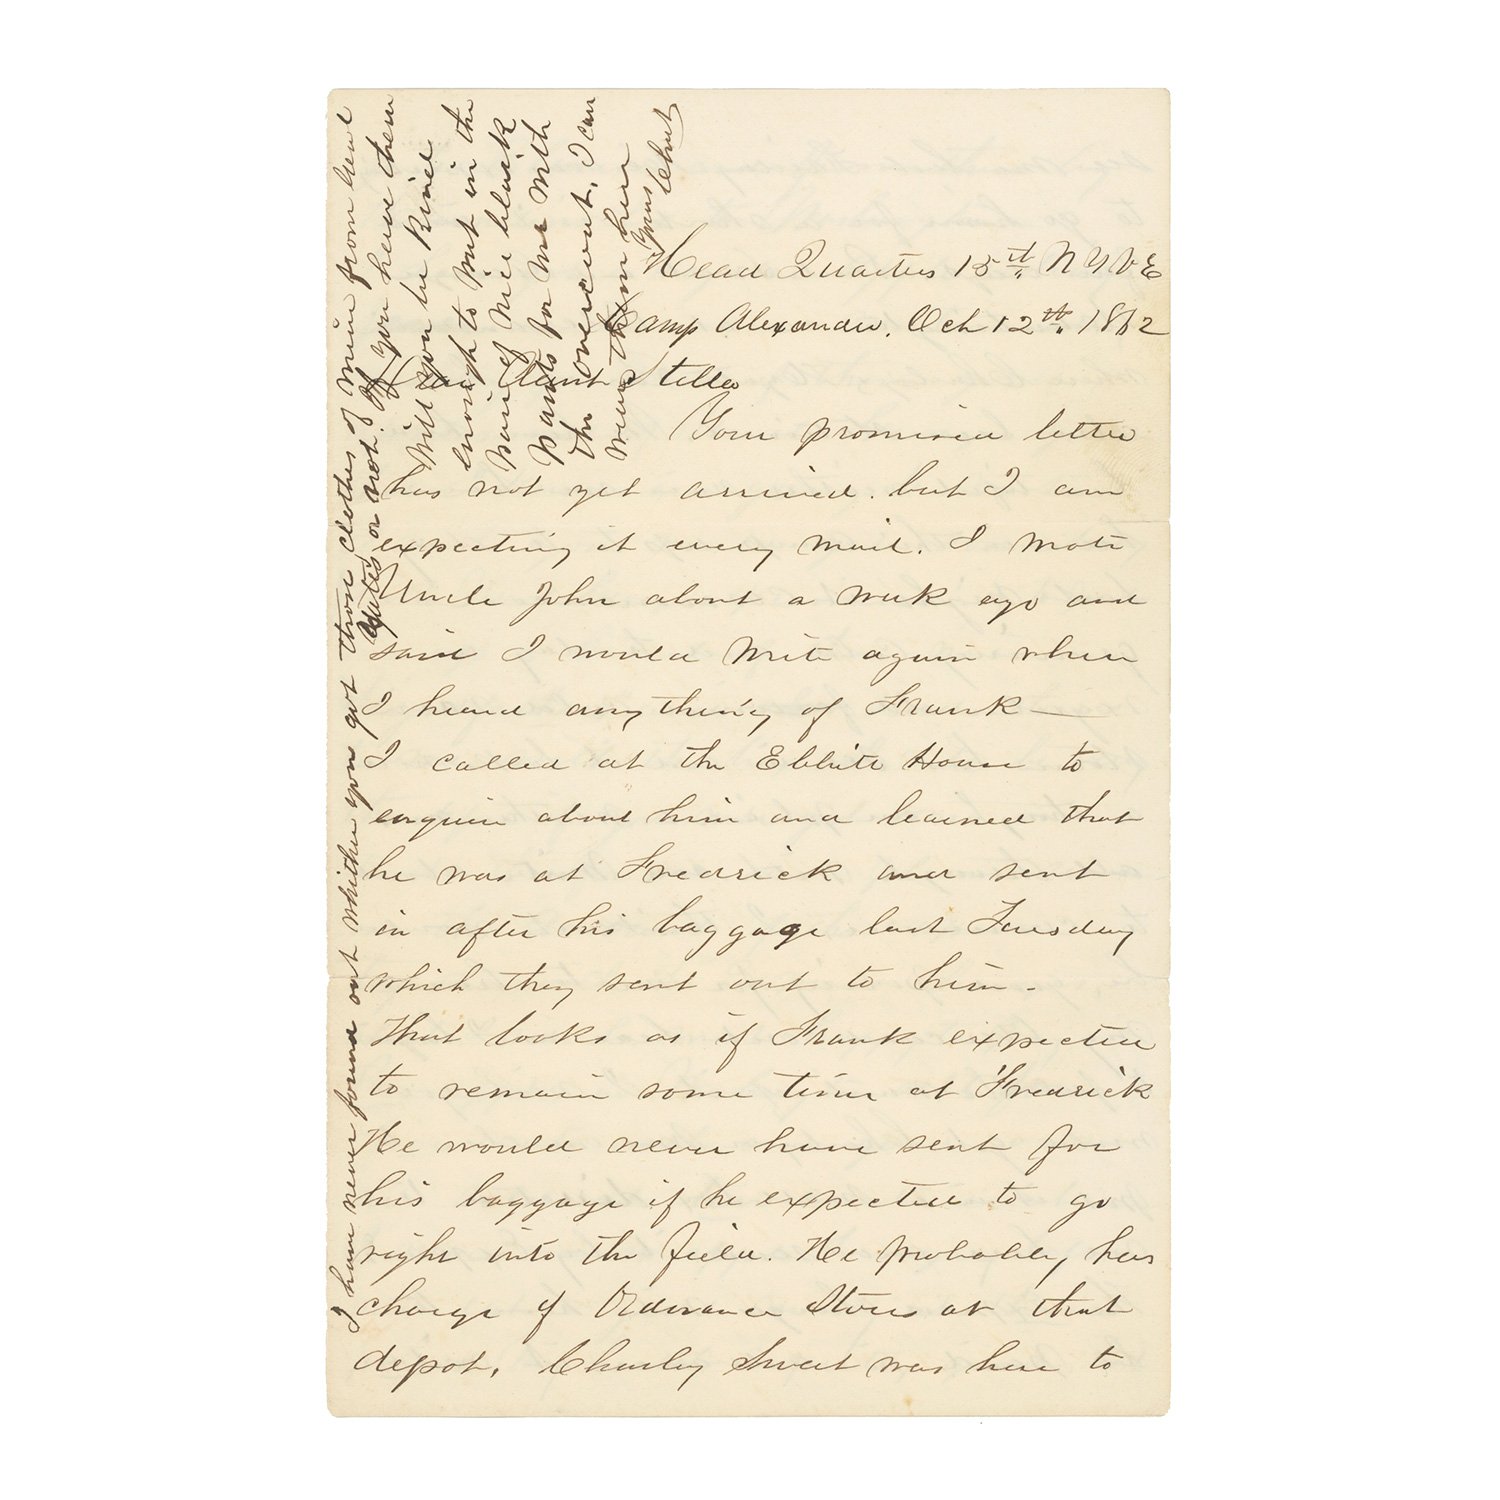 Head Quarters 15th N Y V E
Camp Alexander. Oct 12th. 1862
Dear Aunt Stella
Your promised letter
has not yet arrived. but I am
expecting it every mail. I wrote
Uncle John about a week ago and
said I would write again when
I heard anything of Frank—
I called at the Ebbitt House to
enquire about him and learned that
he was at Fredrick and sent
in after his baggage last Tuesday
which they sent out to him.
That looks as if Frank expected
to remain some time at Fredrick
He would never have sent for
his baggage if he expected to go
right into the field. He probably has
charge of Ordnance Stores at that
depot. Charley Sweet was here to
I have never found out whither you got those clothes of mine from
Yates or not. If you have them
Will you be kind
enough to put in the
pair of nice black
pants for me with
the overcoat, I can
wear them here
Yours